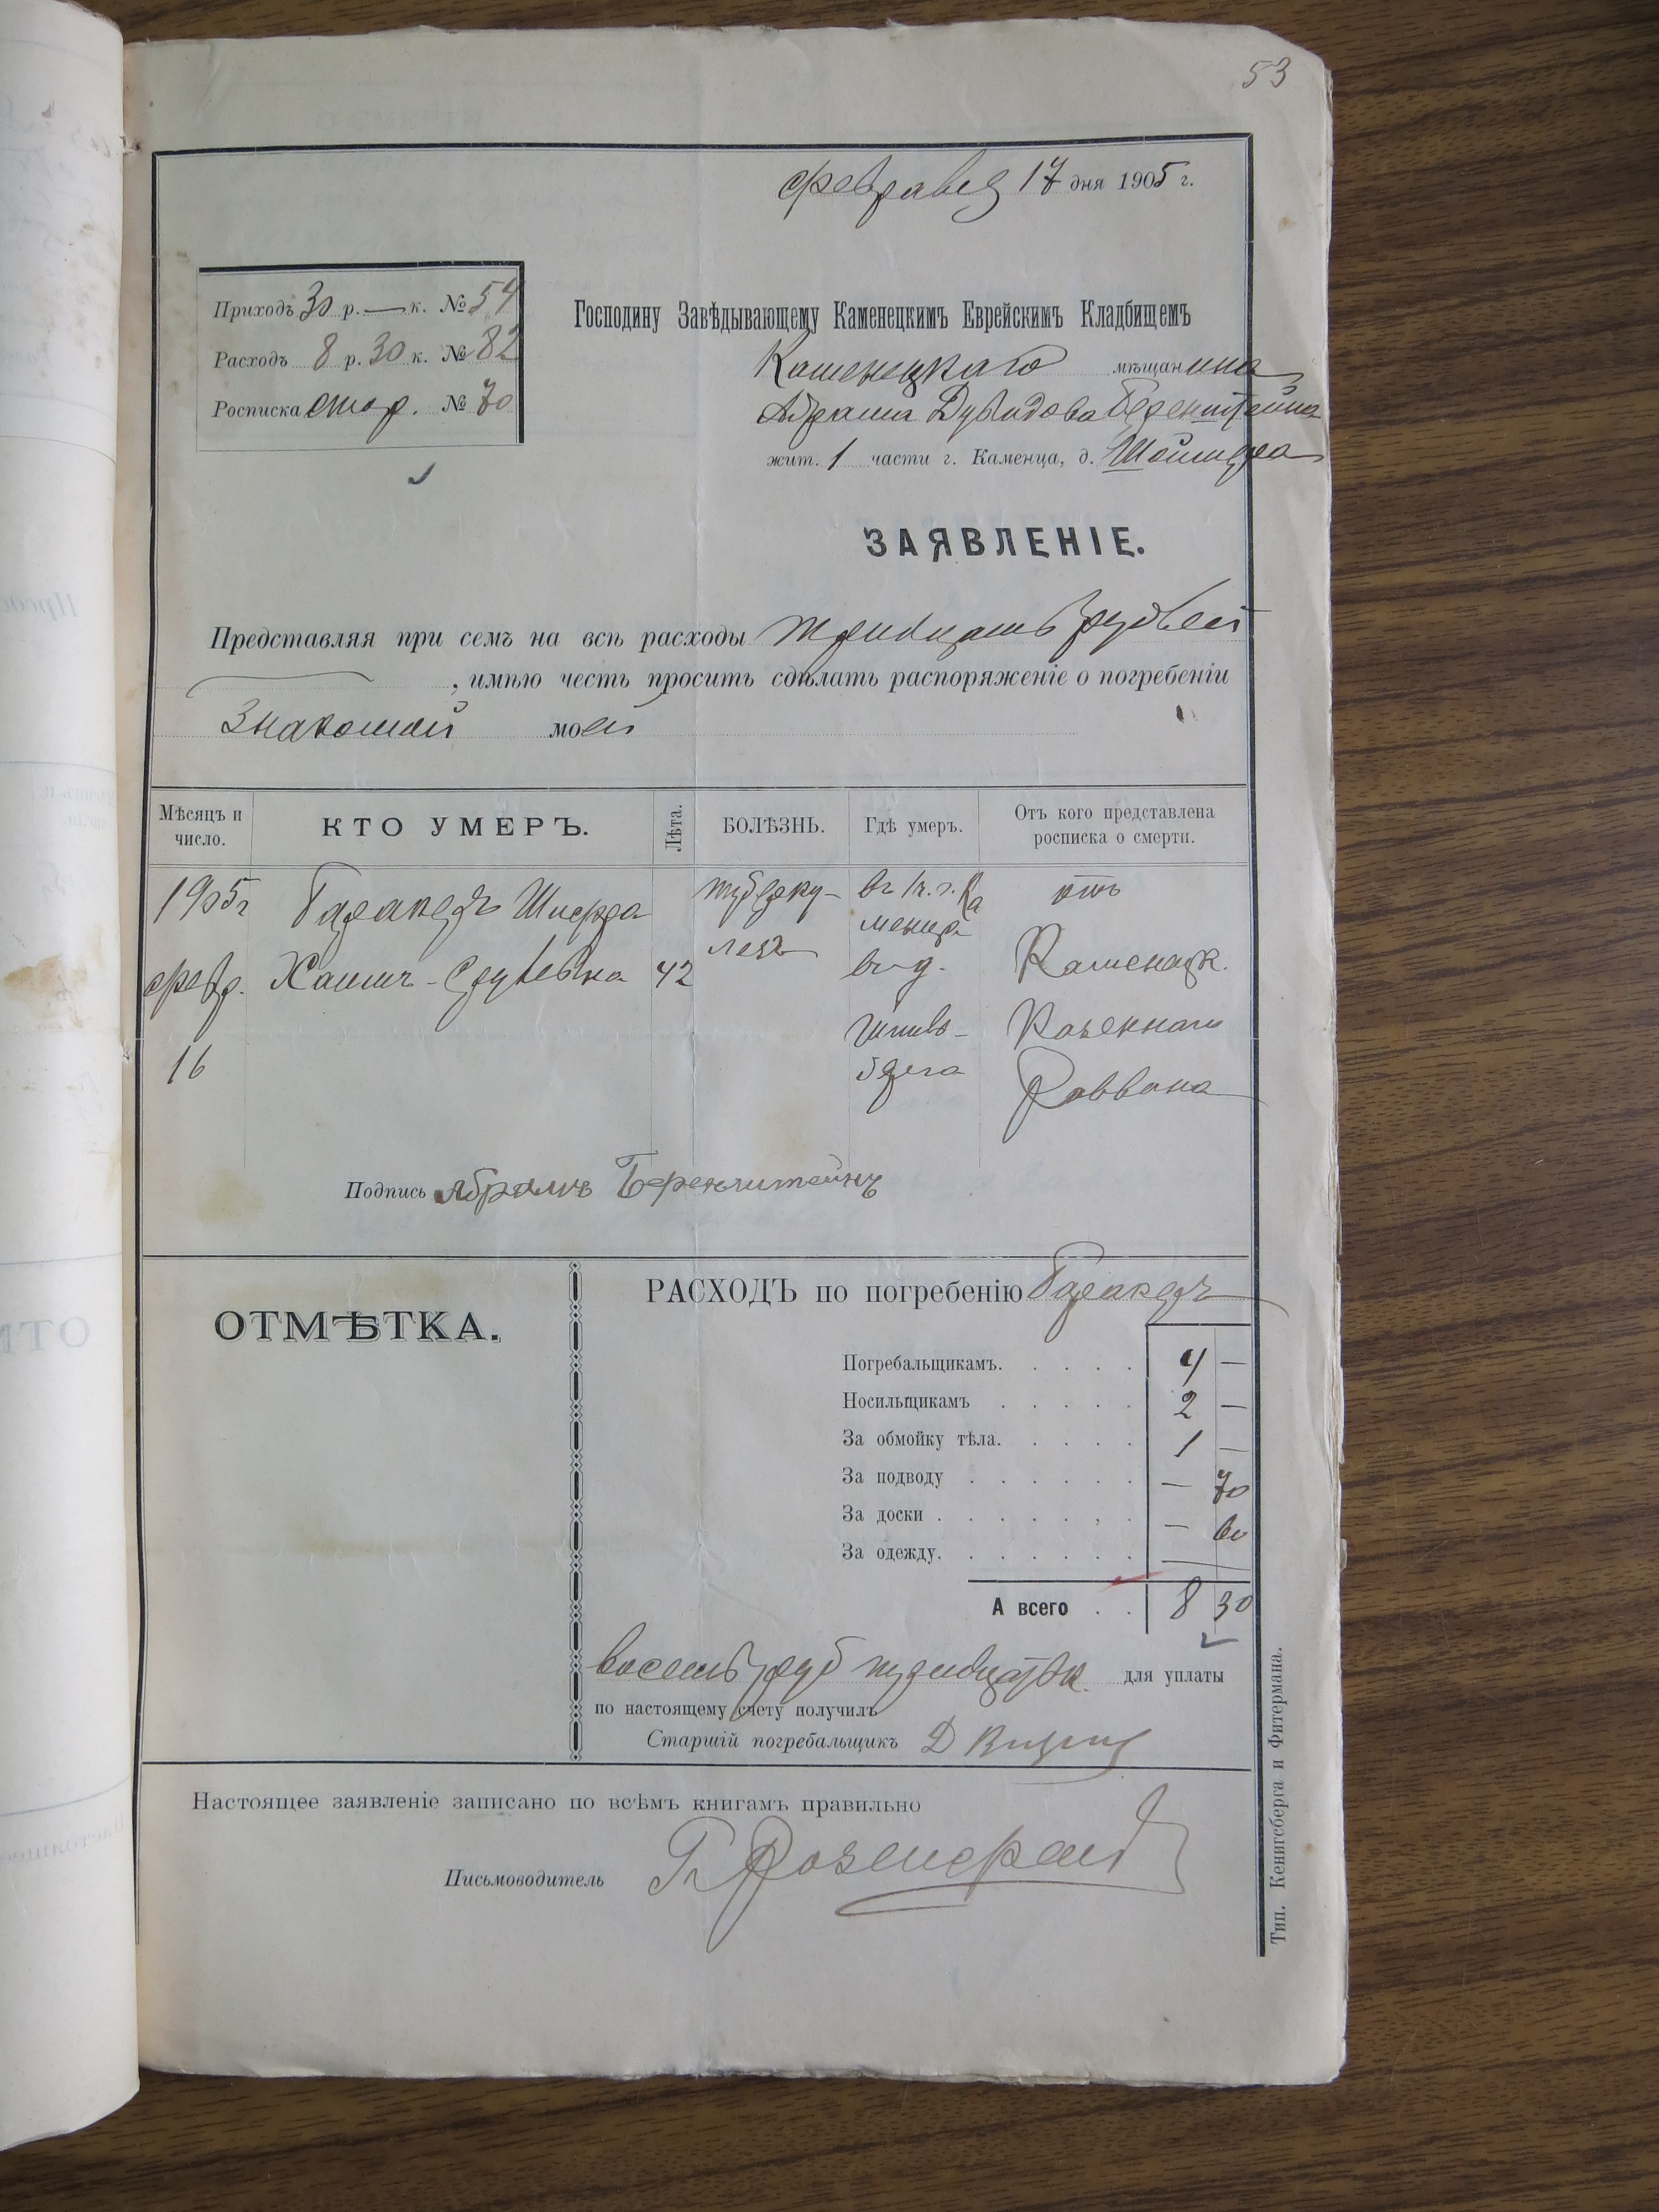 53
февраля 17 дня 1905 г.
Приходъ 30 р. — к. № 54
Расходъ 8 р. 30 к. № 82
Росписка стор. № 70
Господину Завѣдывающему Каменецкимъ Еврейскимъ Кладбищемъ
Каменецкаго мѣщанина
Абрама Дувидова Беренштейна
жит. 1 части г. Каменца, д.
ЗАЯВЛЕНІЕ.
Представляя при семъ на всѣ расходы тридцать рублей
, имѣю честь просить сдѣлать распоряженіе о погребеніи
Знакомой моей
Мѣсяцъ и число.
КТО УМЕРЪ.
Лѣта.
БОЛѢЗНЬ.
Гдѣ умеръ.
Отъ кого представлена росписка о смерти.
1905 г
февр.
16
42
туберку-
леза
въ 1 ч. г. Ка
менца
въ д.
отъ
Каменецк.
Казеннаго
Раввина
Подпись Абрамъ Беренштейнъ
ОТМѢТКА.
РАСХОДЪ по погребенію
Погребальщикамъ. . . . . 4 —
Носильщикамъ . . . . . 2 —
За обмойку тѣла. . . . . 1 —
За подводу . . . . . . — 70
За доски . . . . . . . — 60
За одежду. . . . . . . —
А всего . . 8 30
восемь руб тридцать к. для уплаты
по настоящему счету получилъ
Старшій погребальщикъ Д
Настоящее заявленіе записано по всѣмъ книгамъ правильно
Письмоводитель
Тип. Кенигсберга и Фитермана.